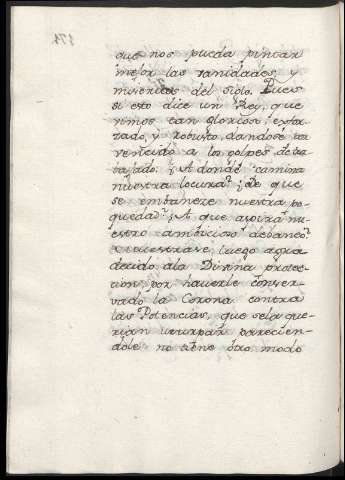 171
que nos pueda pintar
mejor las vanidades, y
miserias del siglo. Pues
si esto dice un Rey, que
vimos tan glorioso, esfor-
zado, y robusto, dandose por
vencido a los golpes de tra-
bajado: ¿A donde camina
nuestra locura? ¿De que
se embanece nuestra po-
quedad? ¿A que aspira nu-
estro ambicioso debaneo?
luego agra-
decido ala Divina protec-
cion, por haverle conser-
vado la Corona contra
las Potencias, que sela que-
rian usurpar, parecien-
dole no tiene otro modo